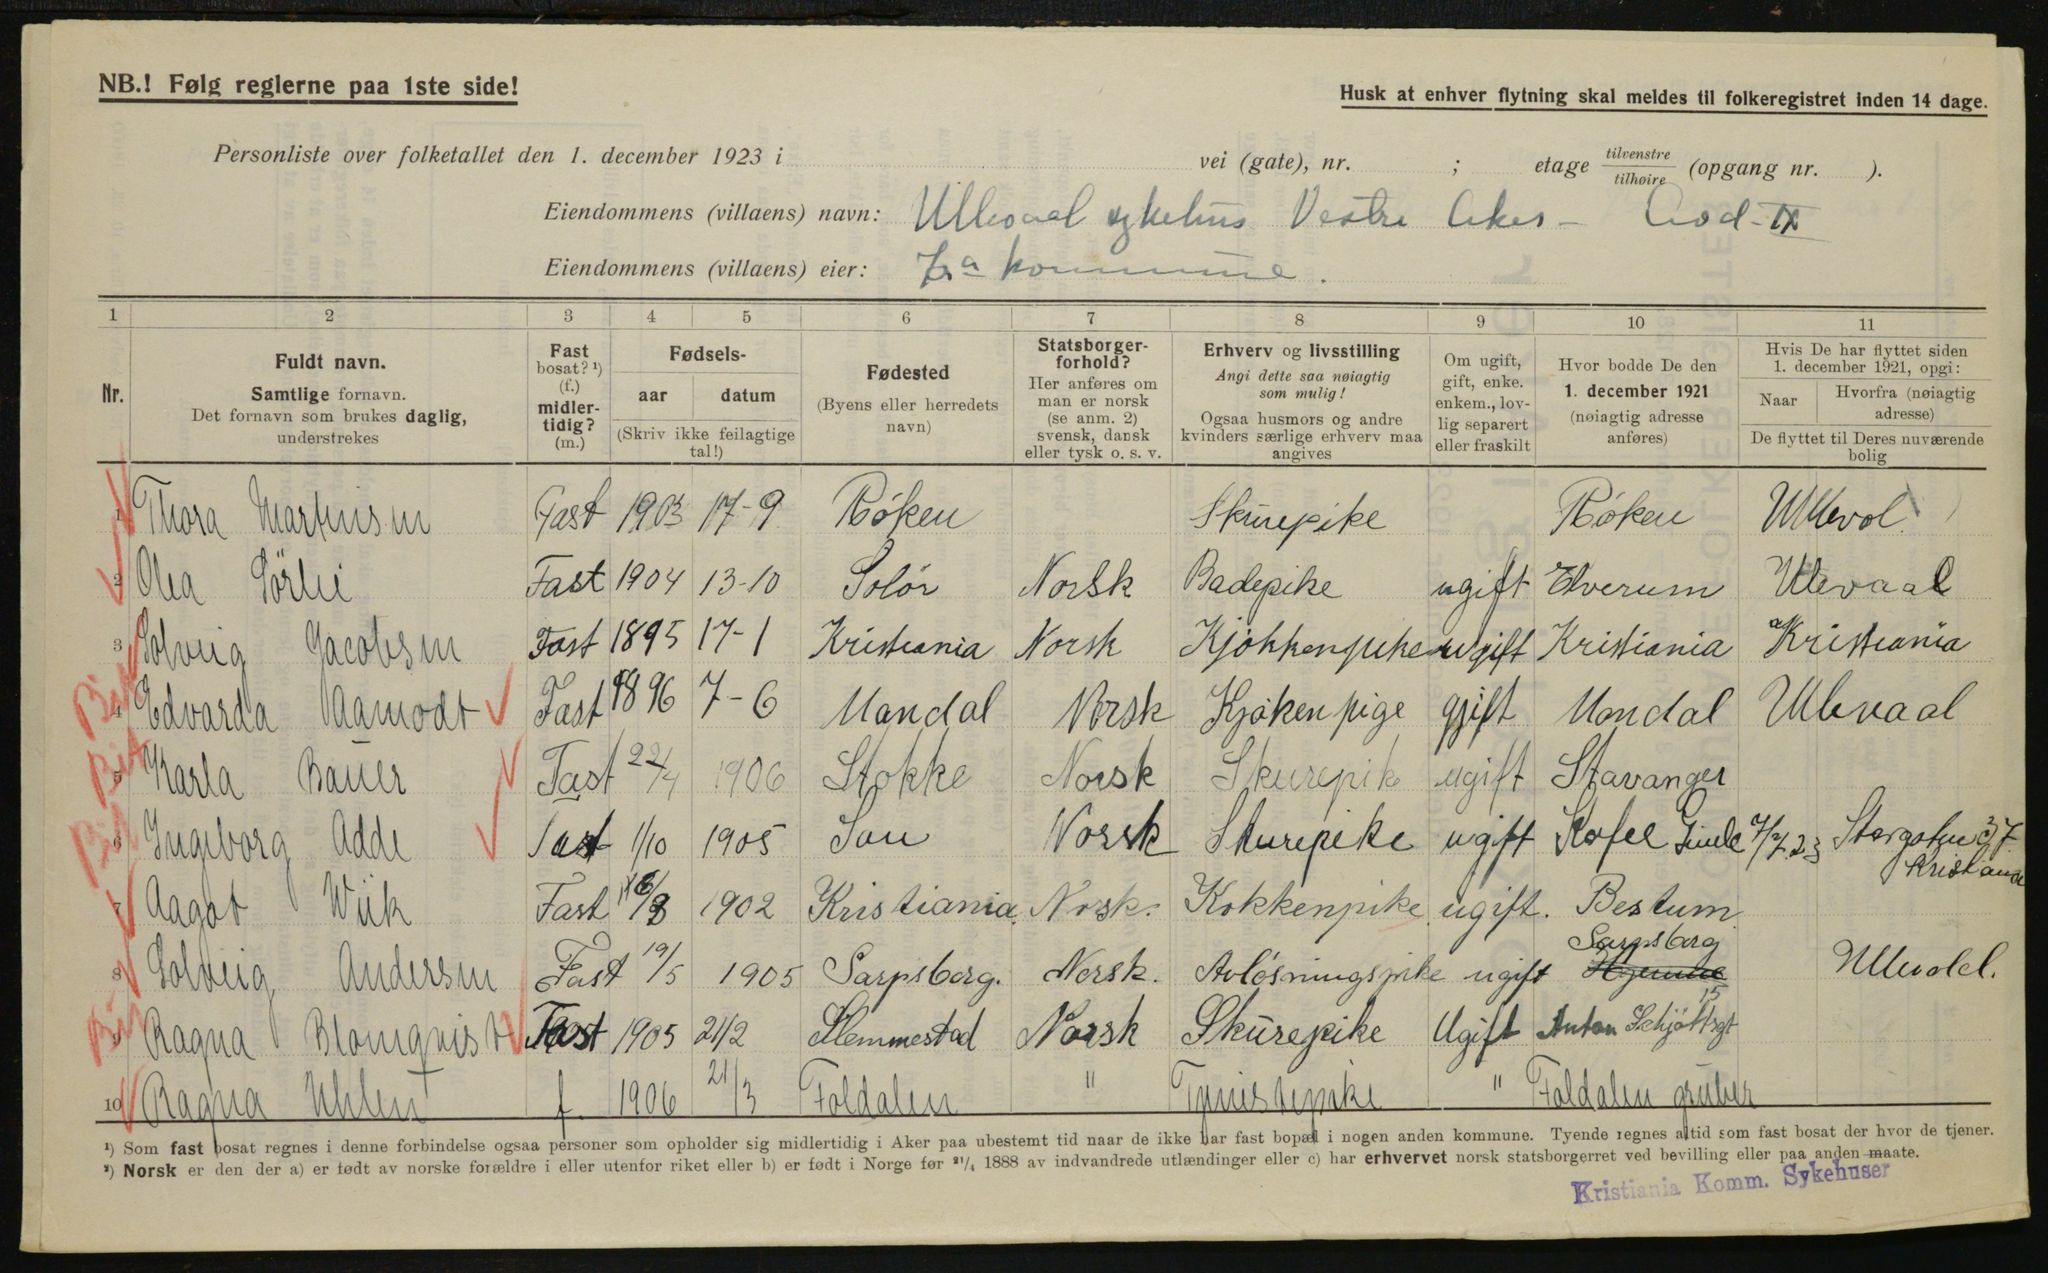 NB.! Følg reglerne paa 1ste side!
Husk at enhver flytning skal meldes til folkeregistret inden 14 dage.
Personliste over folketallet den 1. december 1923 i vei (gate), nr. ; etage tilvenstre/tilhøire (opgang nr. ).
Eiendommens (villaens) navn: Ullevaal sykehus Vestre Aker -
Eiendommens (villaens) eier: Kra kommune.
1 2 3 4 5 6 7 8 9 10 11
Nr.
Fuldt navn.
Samtlige fornavn.
Det fornavn som brukes daglig,
understrekes
Fast
bosat? ¹)
(f.)
midler-
tidig?
(m.)
Fødsels-
aar datum
(Skriv ikke feilagtige
tal!)
Fødested
(Byens eller herredets
navn)
Statsborger-
forhold?
Her anføres om
man er norsk
(se anm. 2)
svensk, dansk
eller tysk o. s. v.
Erhverv og livsstilling
Angi dette saa nøiagtig
som mulig!
Ogsaa husmors og andre
kvinders særlige erhverv maa
angives
Om ugift,
gift, enke.
enkem., lov-
lig separert
eller fraskilt
Hvor bodde De den
1. december 1921
(nøiagtig adresse
anføres)
Hvis De har flyttet siden
1. december 1921, opgi:
Naar Hvorfra (nøiagtig
adresse)
De flyttet til Deres nuværende
bolig
1 Thora Martinsen Fast 1903 17-9 Röken Skurepike Röken Ullevol
2 Olea Sörlie Fast 1904 13-10 Solör Norsk Badepike ugift Elverum Ulevaal
3 Solveig Jacobsen Fast 1895 17-1 Kristiania Norsk Kjøkkenpike ugift Kristiania Kristiania
4 Edvarda Aamodt Fast 1896 7-6 Mandal Norsk Kjøkenpige gift Mandal Ulevaal
5 Karla Bauer Fast 22/4 1906 Stokke Norsk Skurepik ugift Stavanger
6 Ingeborg Adde Fast 1/10 1905 Son Norsk Skurepike ugift 7/7.23 Storgaten 37
Kristiania
7 Aagot Wiik Fast 1902 Kristiania Norsk. Kokkenpike ugift. Bestum
Sarpsborg
8 Solveig Andersen Fast 19/5 1905 Sarpsborg. Norsk. Avlösningspike ugift Ullevold.
9 Ragna Blomqvist Fast 1905 21/2 Slemmestad Norsk Skurepike Ugift Anton Schjøttsgt 15
10 Ragna Uhlen f. 1906 21/3 Foldalen " " Foldalen gruber
¹) Som fast bosat regnes i denne forbindelse ogsaa personer som opholder sig midlertidig i Aker paa ubestemt tid naar de ikke har fast bopæl i nogen anden kommune. Tyende regnes altid som fast bosat der hvor de tjener.
²) Norsk er den der a) er født av norske forældre i eller utenfor riket eller b) er født i Norge før ²¹/₄ 1888 av indvandrede utlændinger eller c) har erhvervet norsk statsborgerret ved bevilling eller paa anden maate.
Kristiania Komm. Sykehuser